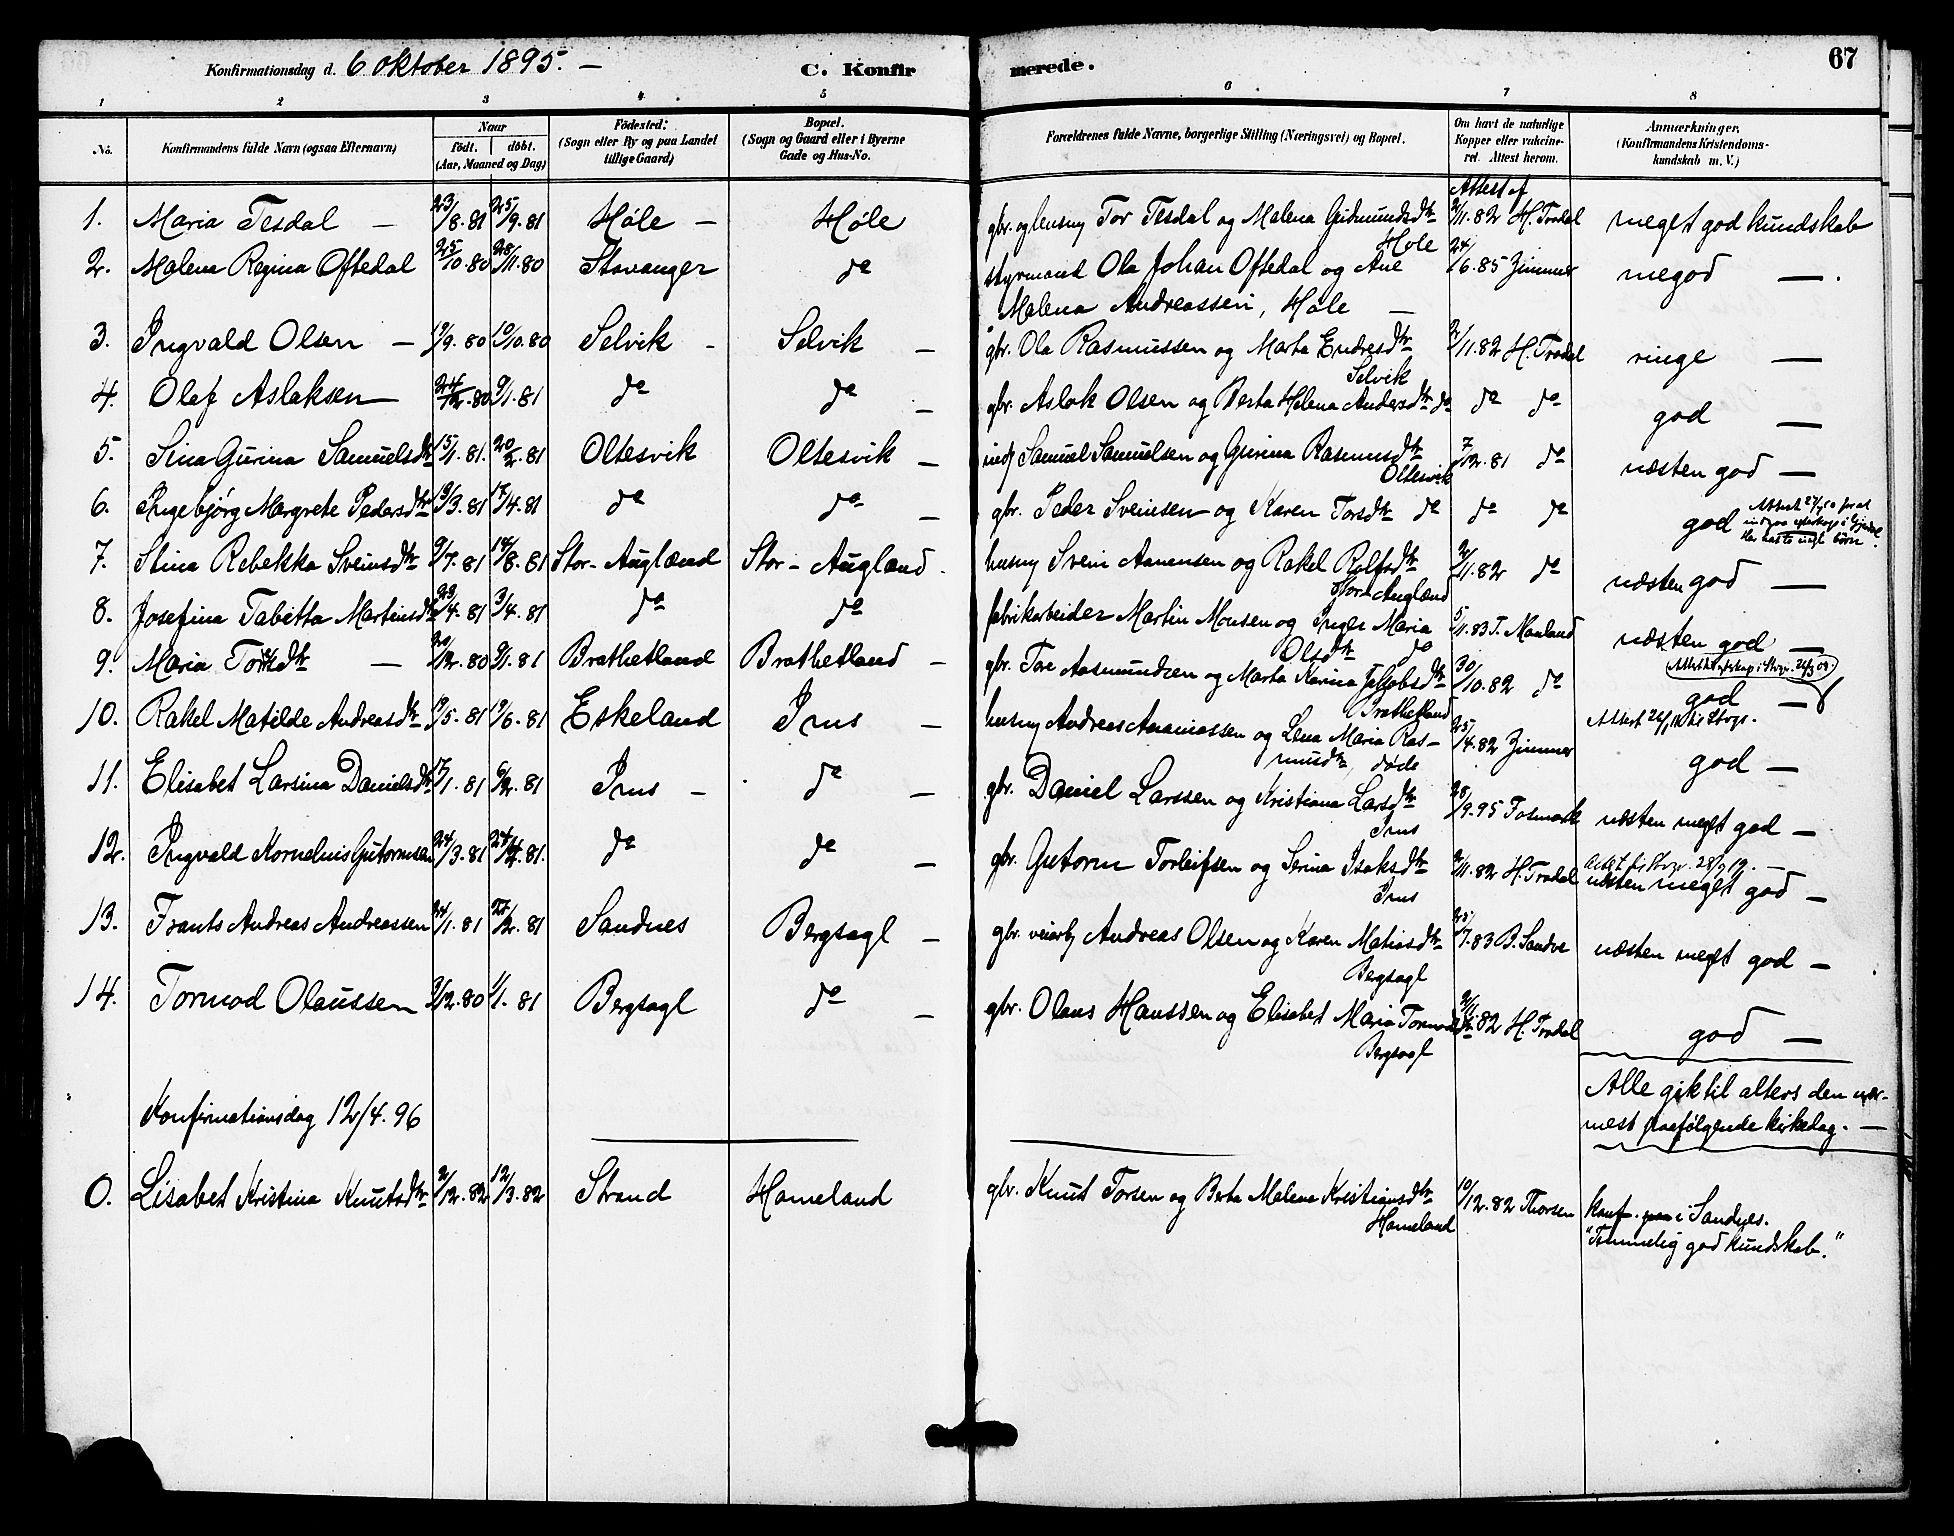 Konfirmationsdag d. 6 oktober 1895. — C. Konfirmerede. 67
1 2 3 4 5 6 7 8
No. Konfirmandens fulde Navn (ogsaa Efternavn) Naar födt. döbt. (Aar, Maaned og Dag) Födested: (Sogn eller By og paa Landet tillige Gaard) Bopæl. (Sogn og Gaard eller i Byerne Gade og Hus-No. Forældrenes fulde Navne, borgerlige Stilling (Næringsvei) og Bopæl. Om havt de naturlige Kopper eller vakcineret. Attest herom. Anmærkninger, (Konfirmandens Kristendomskundskab m. V.)
Attest af
1. Maria Tesdal — 23/8.81 25/9.81 Høle — Høle gbr. og lensm Tor Tesdal og Malena Gudmundsdtr Høle 2/11.82 H. Tradal meget god kundskab
2. Malena Regina Oftedal 25/10.80 28/11.80 Stavanger do styrmand Ola Johan Oftedal og Ane Malena Andreassen, Høle — 24/6.85 Zimmer megod — .
3. Ingvald Olsen — 19/9.80 10/10.80 Selvik - Selvik — gbr. Ola Rasmussen og Marta Endresdtr Selvik 2/11.82 H. Tradal ringe —
4. Olaf Aslaksen — 24/12.80 9/1.81 do do — gbr. Aslak Olsen og Berta Helena Andersdtr do do do god —
5. Sina Gurina Samuelsdtr 15/1.81. 20/2.81 Oltesvik Oltesvik — inds Samuel Samuelsen og Gurina Rasmusdtr Oltesvik 7/12.81 do næsten god —
6. Ingebjørg Margrete Pedersdtr 19/3.81 17/4.81 do do — gbr. Peder Sveinsen og Karen Torsdtr do do do god
7. Stina Rebekka Sveinsdtr 9/7.81 14/8.81 Stor-Augland Stor-Augland. husmg Svein Aanensen og Rakel Rolfsdtr Stor-Augland 2/11.82 do næsten god —
8. Josefina Tabitta Martinsdtr 23/4.81 3/4.81 do do fabrikarbeider Martin Monsen og Inger Maria Olsdtr do 5/11.83 T. Manland næsten god —
9. Maria Torsdtr — 20/12.80 9/1.81 Brathetland Brathetland — gbr. Tore Aasmundsen og Marta Karina Jakobsdtr Brathetland 30/10.82 do god —
10. Rakel Matilde Andreasdtr 19/5.81 19/6.81 Eskeland Ims — husmg Andreas Ananiassen og Lena Maria Rasmusdtr, døde 25/4.82 Zimmer god —
11. Elisabet Larsina Danielsdtr 17/1.81 6/2.81 Ims — do — gbr. Daniel Larssen og Kristiana Larsdtr Ims 28/9.95 Fosmark næsten meget god —
12. Ingvald Kornelius Gutormsen 24/3.81 24/4.81. do do — gbr. Gutorm Torleifsen og Serina Isaksdtr Ims 2/11.82 H. Tradal næsten meget god —
13. Frants Andreas Andreassen 24/1.81 27/2.81 Sandnes Bergsagl — gbr. veiarb Andreas Olsen og Karen Matiasdtr Bergsagl 25/7.83 B. Sandve næsten meget god —
14. Tormod Olaussen 3/12.80 1/1.81 Bergsagl do — gbr. Olaus Hanssen og Elisabet Maria Tormodsdtr Bergsagl 2/11.82 H. Tradal god —
Alle gik til alters den nærmest paafølgende kirkedag. —
Konfirmationsdag 12/4.96
0. Lisabet Kristina Knutsdtr 2/12.82 12/3.82 Strand Hameland gbr. Knut Torsen og Berta Malena Kristiansdtr Hameland 10/12.82 Thorsen konf. i Sandnes. "Temmelig god kundskab."